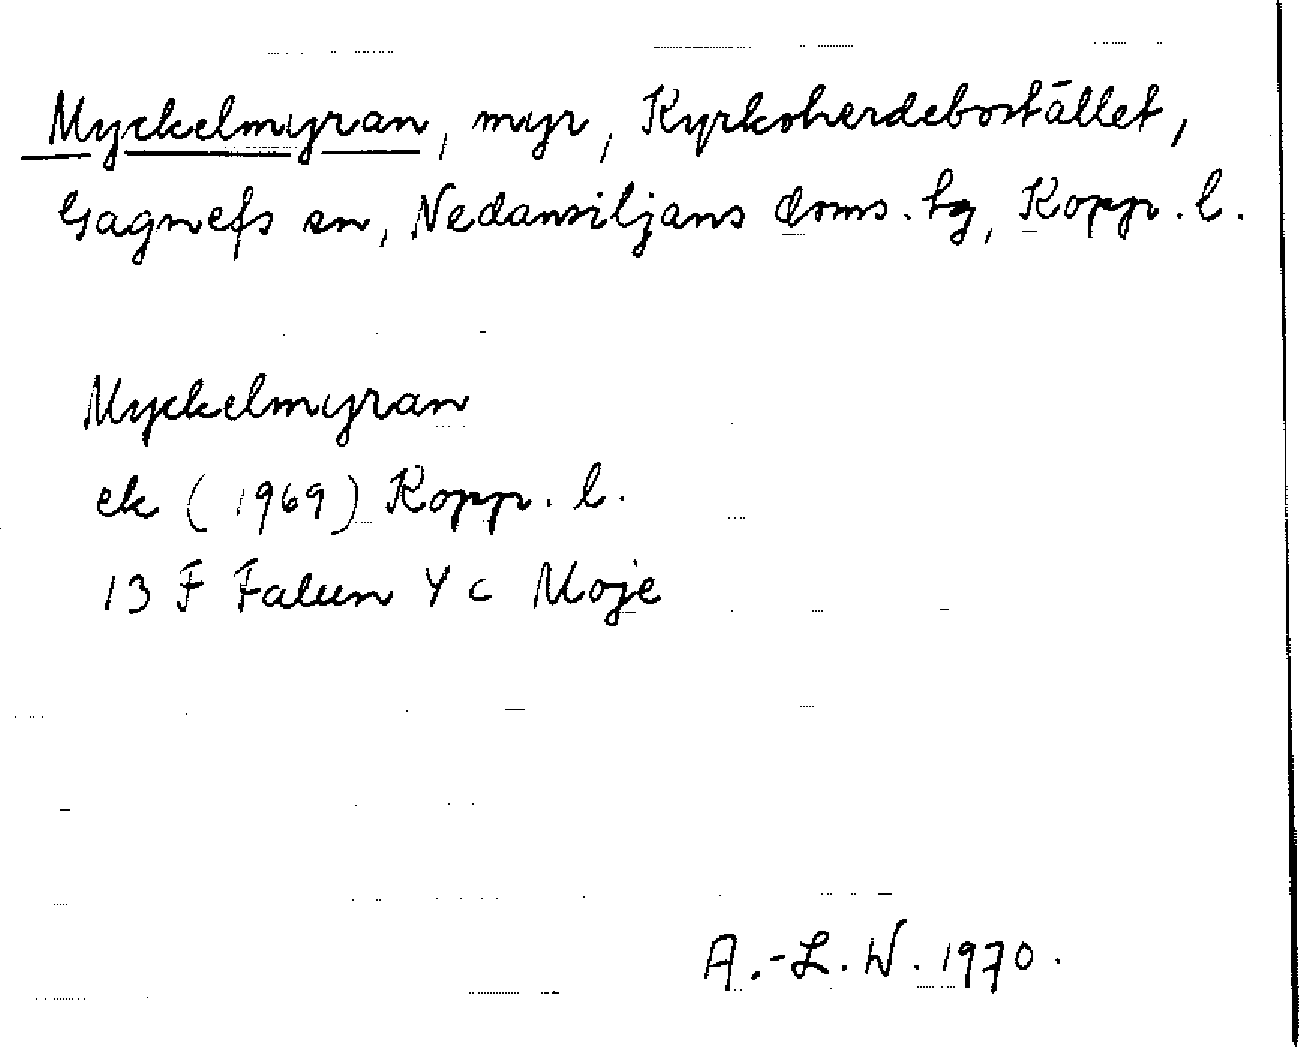 Myckelmyran, myr, Kyrkoherdebostället,
Gagnefs sn, Nedansiljans doms. hg, Kopp. l.
Myckelmyran
ek (1969) Kopp. l.
13 F Falun Y c Moje
A.-L. W. 1970.